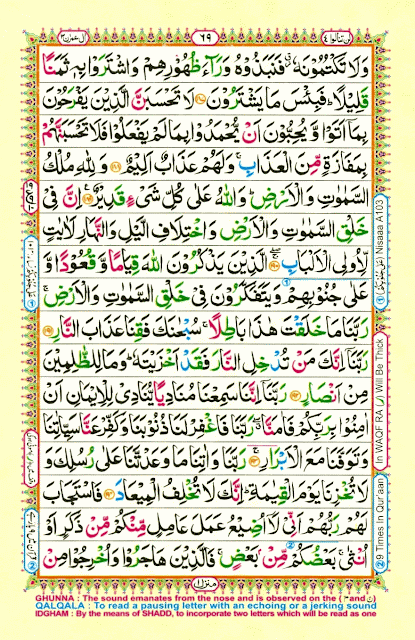 لن تنالوا ٤
٦٩
اٰل عمرٰن ٣
وَلَا تَكْتُمُوْنَهٗ ؗ فَنَبَذُوْهُ وَرَآءَ ظُهُوْرِهِمْ وَاشْتَرَوْا بِهٖ ثَمَنًا
قَلِيْلًا ؕ فَبِئْسَ مَا يَشْتَرُوْنَ ۝ لَا تَحْسَبَنَّ الَّذِيْنَ يَفْرَحُوْنَ
بِمَاۤ اَتَوْا وَّيُحِبُّوْنَ اَنْ يُّحْمَدُوْا بِمَا لَمْ يَفْعَلُوْا فَلَا تَحْسَبَنَّهُمْ
بِمَفَازَةٍ مِّنَ الْعَذَابِ ۚ وَلَهُمْ عَذَابٌ اَلِيْمٌ ۝ وَلِلّٰهِ مُلْكُ
السَّمٰوٰتِ وَالْاَرْضِ ؕ وَاللّٰهُ عَلٰى كُلِّ شَيْءٍ قَدِيْرٌ ۝ اِنَّ فِيْ
خَلْقِ السَّمٰوٰتِ وَالْاَرْضِ وَاخْتِلَافِ الَّيْلِ وَالنَّهَارِ لَاٰيٰتٍ
لِّاُولِي الْاَلْبَابِ ۝ الَّذِيْنَ يَذْكُرُوْنَ اللّٰهَ قِيَامًا وَّقُعُوْدًا وَّ
عَلٰى جُنُوْبِهِمْ وَيَتَفَكَّرُوْنَ فِيْ خَلْقِ السَّمٰوٰتِ وَالْاَرْضِ ۚ
رَبَّنَا مَا خَلَقْتَ هٰذَا بَاطِلًا ۚ سُبْحٰنَكَ فَقِنَا عَذَابَ النَّارِ ۝
رَبَّنَاۤ اِنَّكَ مَنْ تُدْخِلِ النَّارَ فَقَدْ اَخْزَيْتَهٗ ؕ وَمَا لِلظّٰلِمِيْنَ
مِنْ اَنْصَارٍ ۝ رَبَّنَاۤ اِنَّنَا سَمِعْنَا مُنَادِيًا يُّنَادِيْ لِلْاِيْمَانِ اَنْ
اٰمِنُوْا بِرَبِّكُمْ فَاٰمَنَّا ۖ رَبَّنَا فَاغْفِرْ لَنَا ذُنُوْبَنَا وَكَفِّرْ عَنَّا سَيِّاٰتِنَا
وَتَوَفَّنَا مَعَ الْاَبْرَارِ ۝ رَبَّنَا وَاٰتِنَا مَا وَعَدْتَّنَا عَلٰى رُسُلِكَ وَ
لَا تُخْزِنَا يَوْمَ الْقِيٰمَةِ ؕ اِنَّكَ لَا تُخْلِفُ الْمِيْعَادَ ۝ فَاسْتَجَابَ
لَهُمْ رَبُّهُمْ اَنِّيْ لَاۤ اُضِيْعُ عَمَلَ عَامِلٍ مِّنْكُمْ مِّنْ ذَكَرٍ اَوْ
اُنْثٰى ۚ بَعْضُكُمْ مِّنْۢ بَعْضٍ ۚ فَالَّذِيْنَ هَاجَرُوْا وَاُخْرِجُوْا مِنْ
منزل ١
① Nisaaa A103
In WAQF RA (ر) Will Be Thick
②9 Times In Qur'aan
GHUNNA : The sound emanates from the nose and is observed on the ( م and ن )
QALQALA : To read a pausing letter with an echoing or a jerking sound
IDGHAM : By the means of SHADD, to incorporate two letters which will be read as one